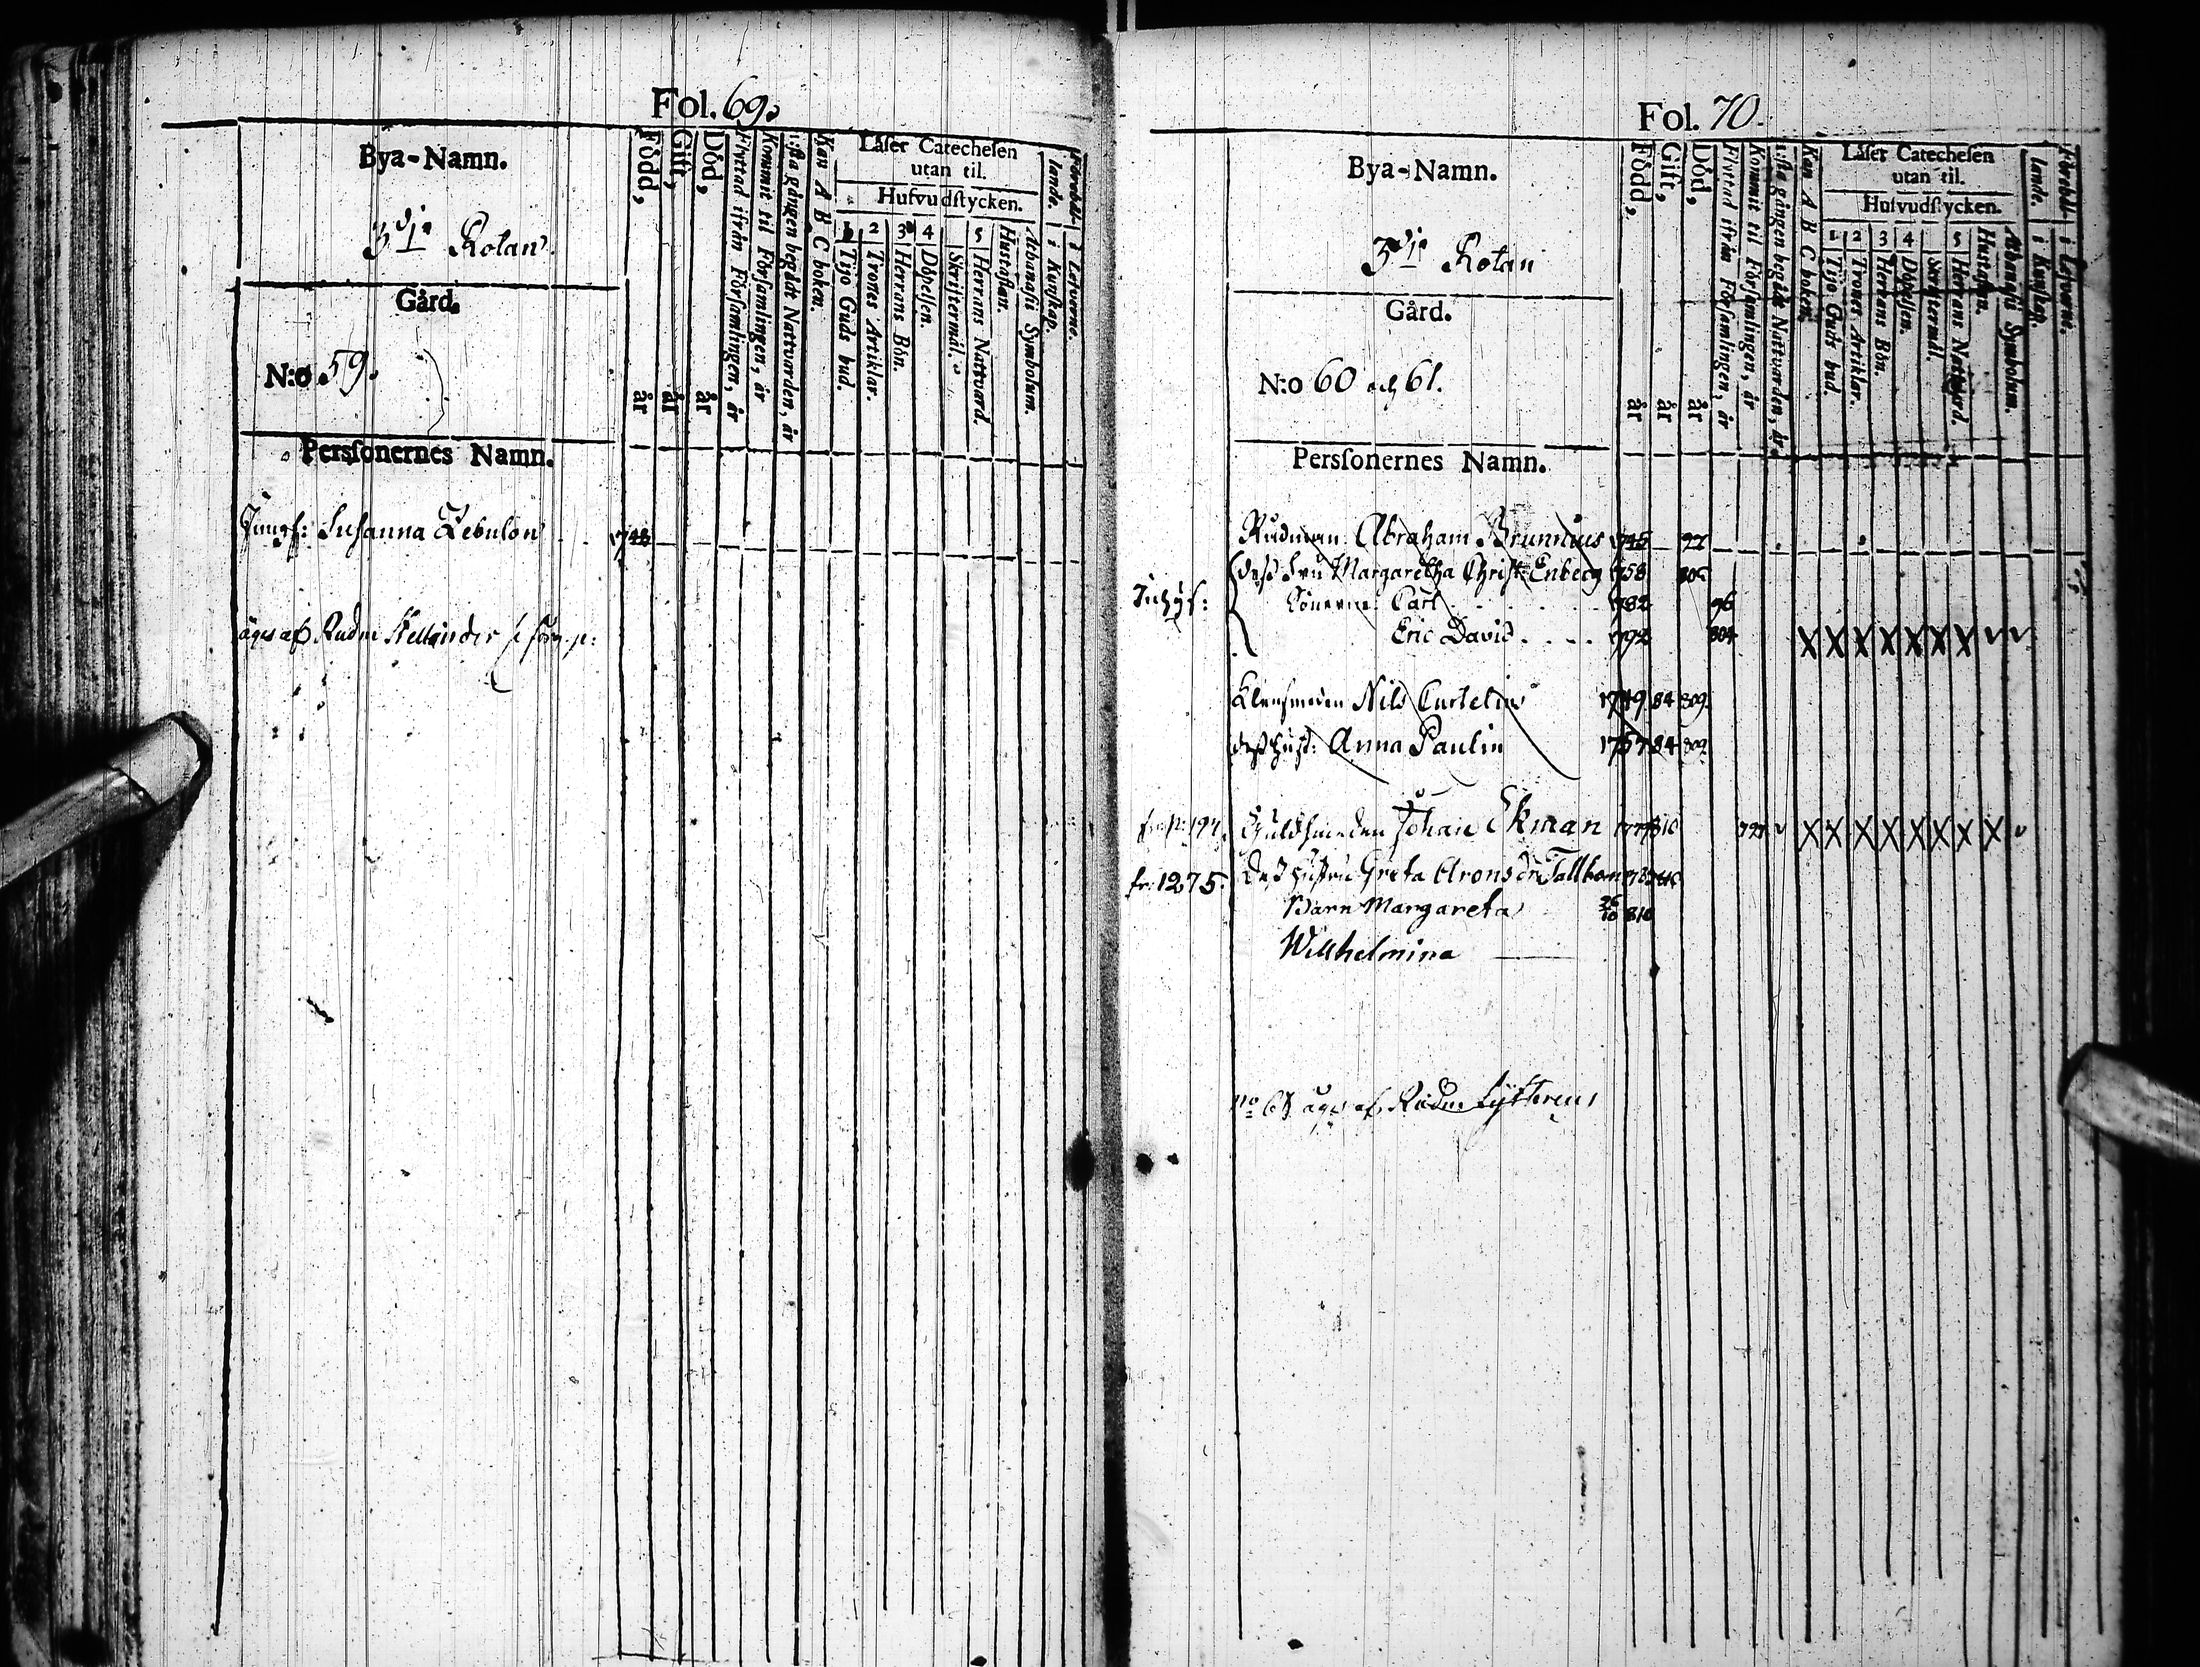 Fol. 69.
Bya-Namn.
3dje Rotan
Gård.
N:o 59.
Persſonernes Namn.
Född, år
Gift, år
Död, år
Flyttad ifrån Församlingen, år
Kommit til Församlingen, år
1:sta gången begådt Nattvarden, år
Kan A B C boken.
Låſer Catecheſen
utan til.
Hufvudſtycken.
1 Tijo Guds bud.
2 Trones Artiklar.
3 Herrans Bön.
4 Döpelſen.
Skriftermål.
5 Herrans Nattvard.
Hustaflan.
Athanasii Symbolum.
Förehållande.
i Kunſkap.
i Lefverne.
Jungf: Susanna Zebulon 1748
äges af Rådm Kellander
Fol. 70.
Bya-Namn.
3dje Rotan
Gård.
N:o 60 och 61.
Persſonernes Namn.
Född, år
Gift, år
Död, år
Flyttad ifrån Församlingen, år
Kommit til Församlingen, år
1:sta gången begådt Nattvarden, år
Kan A B C boken.
Låſer Catecheſen
utan til.
Hufvudſtycken.
1 Tijo Guds bud.
2 Trones Artiklar.
3 Herrans Bön.
4 Döpelſen.
Skriftermål.
5 Herrans Nattvard.
Hustaflan.
Athanasii Symbolum.
Förehållande.
i Kunſkap.
i Lefverne.
Rådman Abraham Brunnius 1745 97
dess Fru Margaretha Christ: Enberg 1758
Sönerne: Carl 1782 96
Eric David 1792 804 X X X X X X X
Klensmeden Nils Curtelius 1749 84 809
dess Hust: Anna Paulin 1757 84 809
Guldsmeden Johan Ekman 810 X X X X X X X X
fr: 1275. Dess Hustru Greta Aronsdr Tallbom
Barn Margareta 26/10 810
Willhelmina
no 61 äges af Rådm